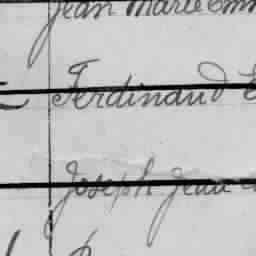 Jean Marie
Ferdinand
Joseph Jean